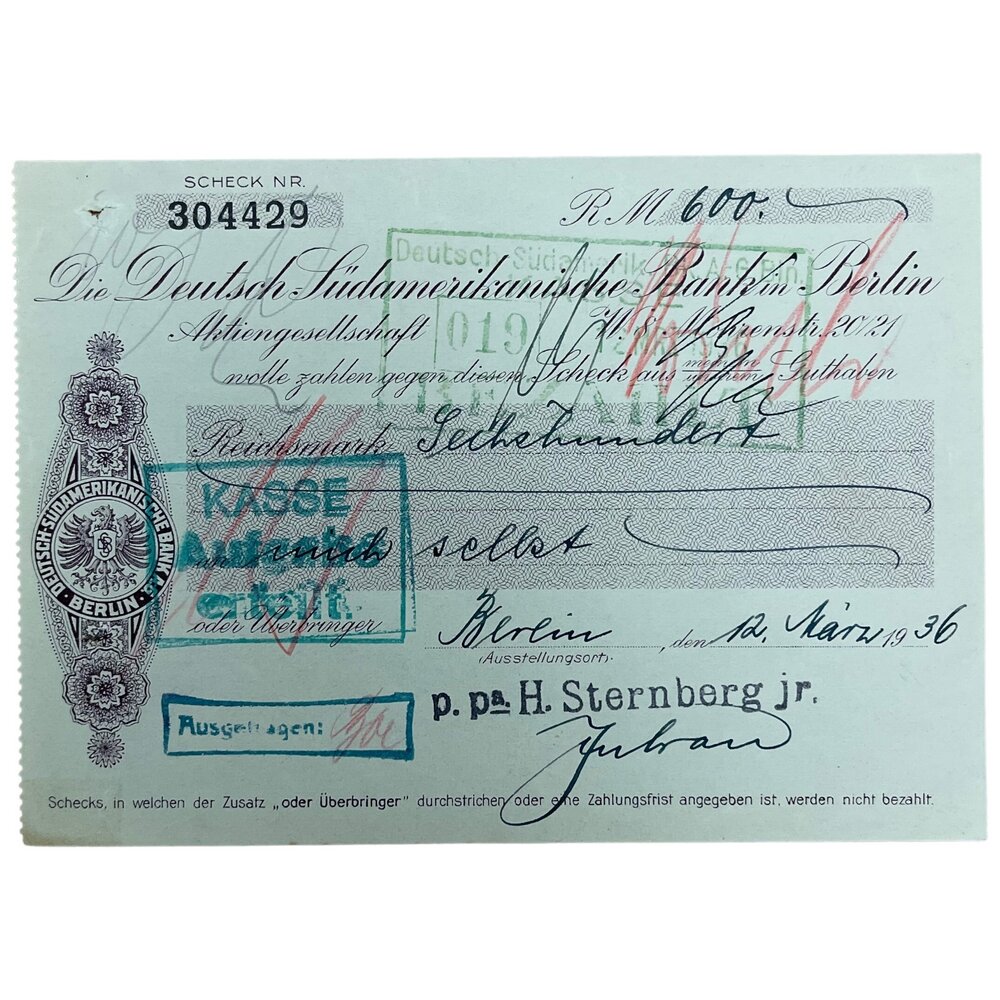 SCHECK NR.
304429
RM 600.
Die Deutsch-Südamerikanische Bank in Berlin
Aktiengesellschaft W. 8, Mohrenstr. 20/21
wolle zahlen gegen diesen Scheck aus Guthaben
Deutsch-Südamerik. Bk. A-G. Bln.
019
BEZAHLT
Reichsmark Sechshundert
KASSE
mich selbst
erteilt.
oder Überbringer
Berlin, den 12. März 1936
(Ausstellungsort).
p. pa. H. Sternberg jr.
Ausgetragen:
DEUTSCH-SÜDAMERIKANISCHE BANK A.G.
BERLIN
Schecks, in welchen der Zusatz „oder Überbringer" durchstrichen oder eine Zahlungsfrist angegeben ist, werden nicht bezahlt.